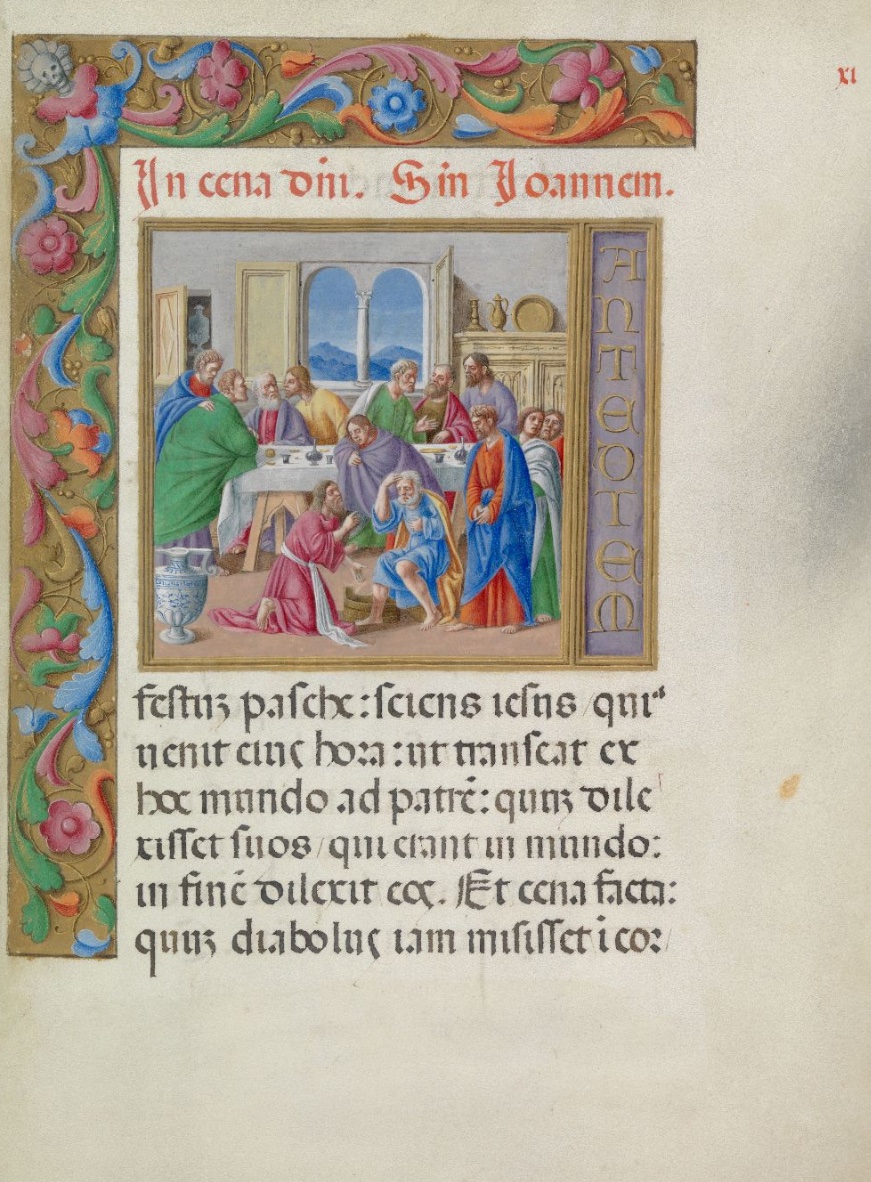 xı
In cena dñi. Sm̄ Joannem.
ANTE DIEM
festuʒ pasche: sciens iesus / quiª
uenit eiuꝰ hora: ut transeat ex
hoc mundo ad patrē: quuʒ dile
xisset suos / qui erant in mundo:
in finē dilexit eoꝰ. Et cena facta:
quuʒ diaboluꝰ iam misisset ī cor /